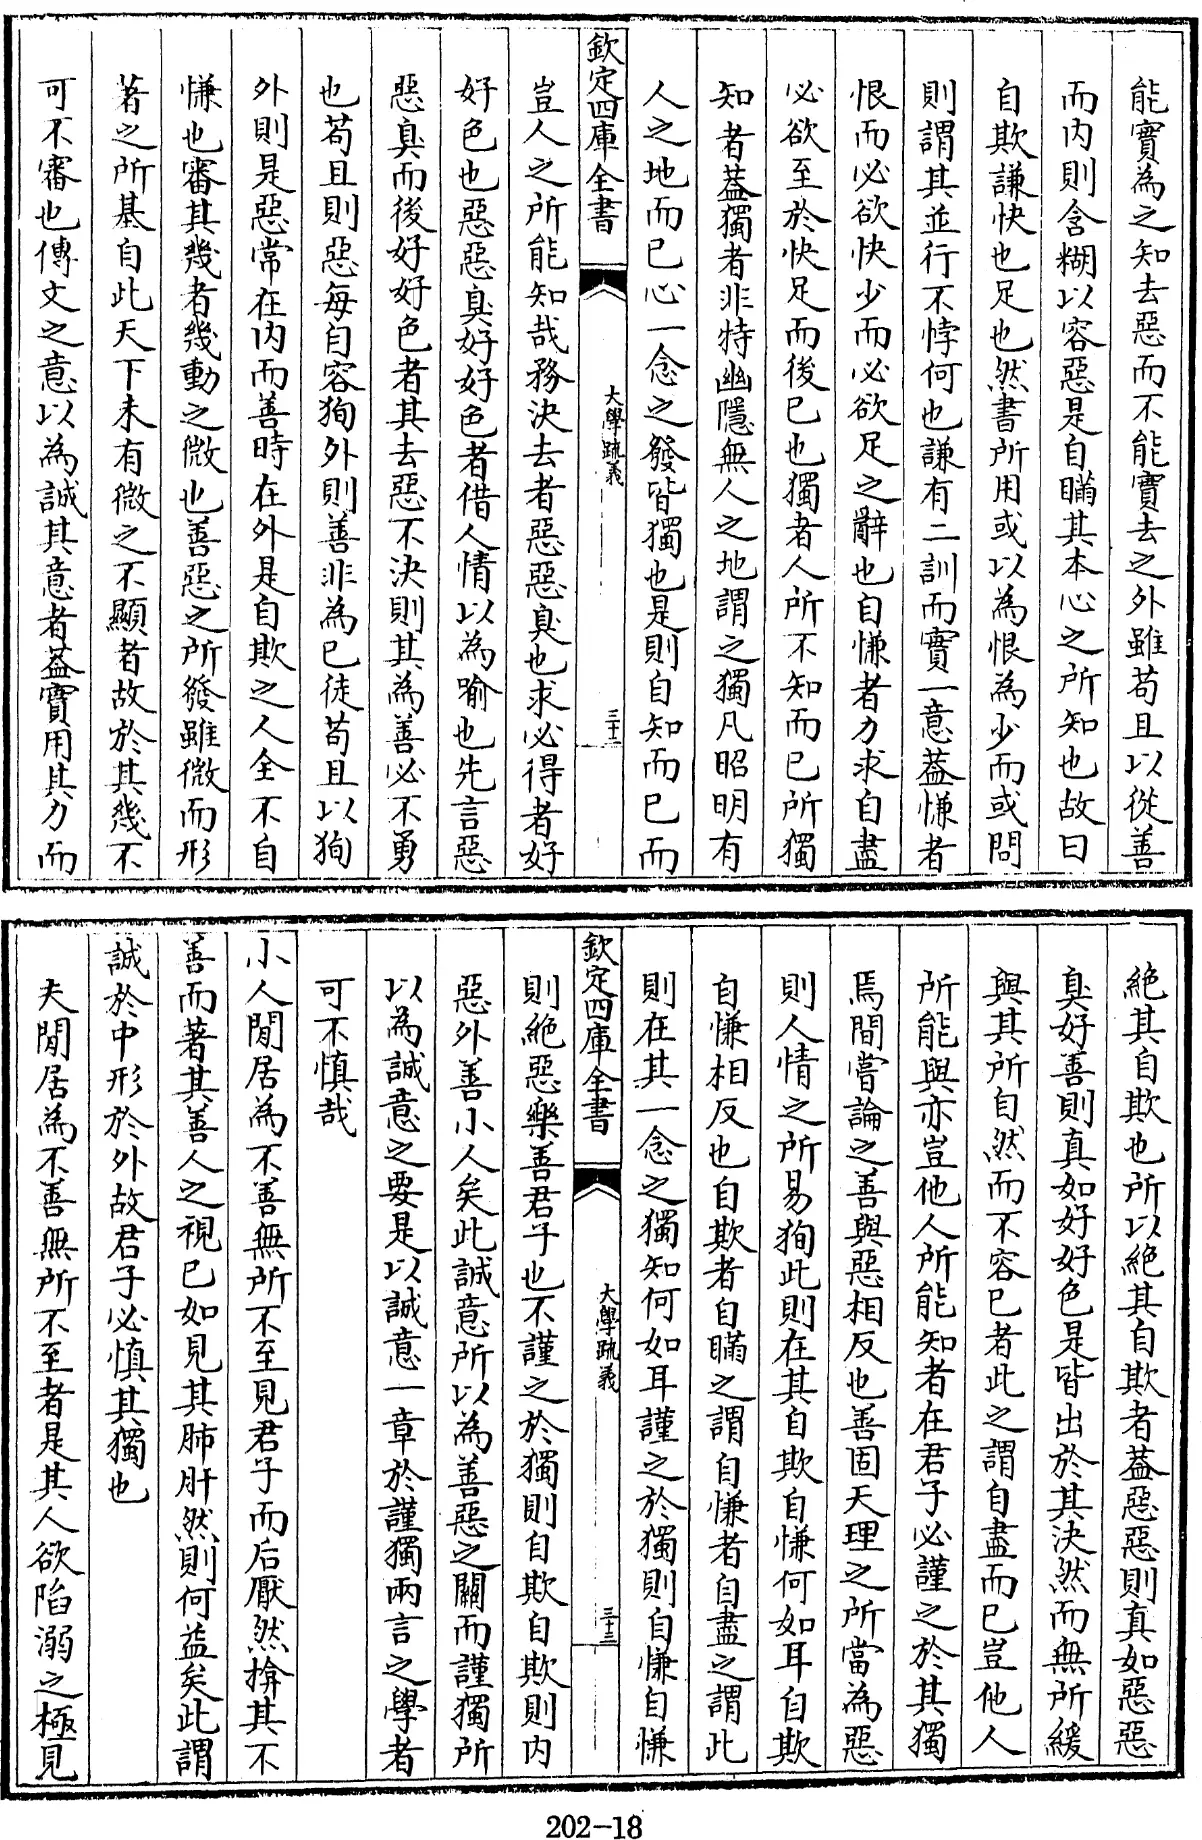 能實為之知去惡而不能實去之外雖苟且以從善
而内則含糊以容惡是自瞞其本心之所知也故曰
自欺謙快也足也然書所用或以為恨為少而或問
則謂其並行不悖何也謙有二訓而實一意葢慊者
恨而必欲快少而必欲足之辭也自慊者力求自盡
必欲至於快足而後已也獨者人所不知而已所獨
知者葢獨者非特幽隱無人之地謂之獨凡昭明有
人之地而已心一念之發皆獨也是則自知而已而
欽定四庫全書
大學疏義
三十二
豈人之所能知哉務決去者惡惡臭也求必得者好
好色也惡惡臭好好色者借人情以為喻也先言惡
惡臭而後好好色者其去惡不決則其為善必不勇
也苟且則惡每自容狥外則善非為已徒苟且以狥
外則是惡常在内而善時在外是自欺之人全不自
慊也審其幾者幾動之微也善惡之所發雖微而形
著之所基自此天下未有微之不顯者故於其幾不
可不審也傳文之意以為誠其意者葢實用其力而
絶其自欺也所以絶其自欺者葢惡惡則真如惡惡
臭好善則真如好好色是皆出於其決然而無所緩
與其所自然而不容已者此之謂自盡而已豈他人
所能與亦豈他人所能知者在君子必謹之於其獨
焉間嘗論之善與惡相反也善固天理之所當為惡
則人情之所易狥此則在其自欺自慊何如耳自欺
自慊相反也自欺者自瞞之謂自慊者自盡之謂此
則在其一念之獨知何如耳謹之於獨則自慊自慊
欽定四庫全書
大學疏義
三十三
則絶惡樂善君子也不謹之於獨則自欺自欺則内
惡外善小人矣此誠意所以為善惡之關而謹獨所
以為誠意之要是以誠意一章於謹獨兩言之學者
可不慎哉
小人閒居為不善無所不至見君子而后厭然揜其不
善而著其善人之視已如見其肺肝然則何益矣此謂
誠於中形於外故君子必慎其獨也
夫閒居為不善無所不至者是其人欲陷溺之極見
202-18